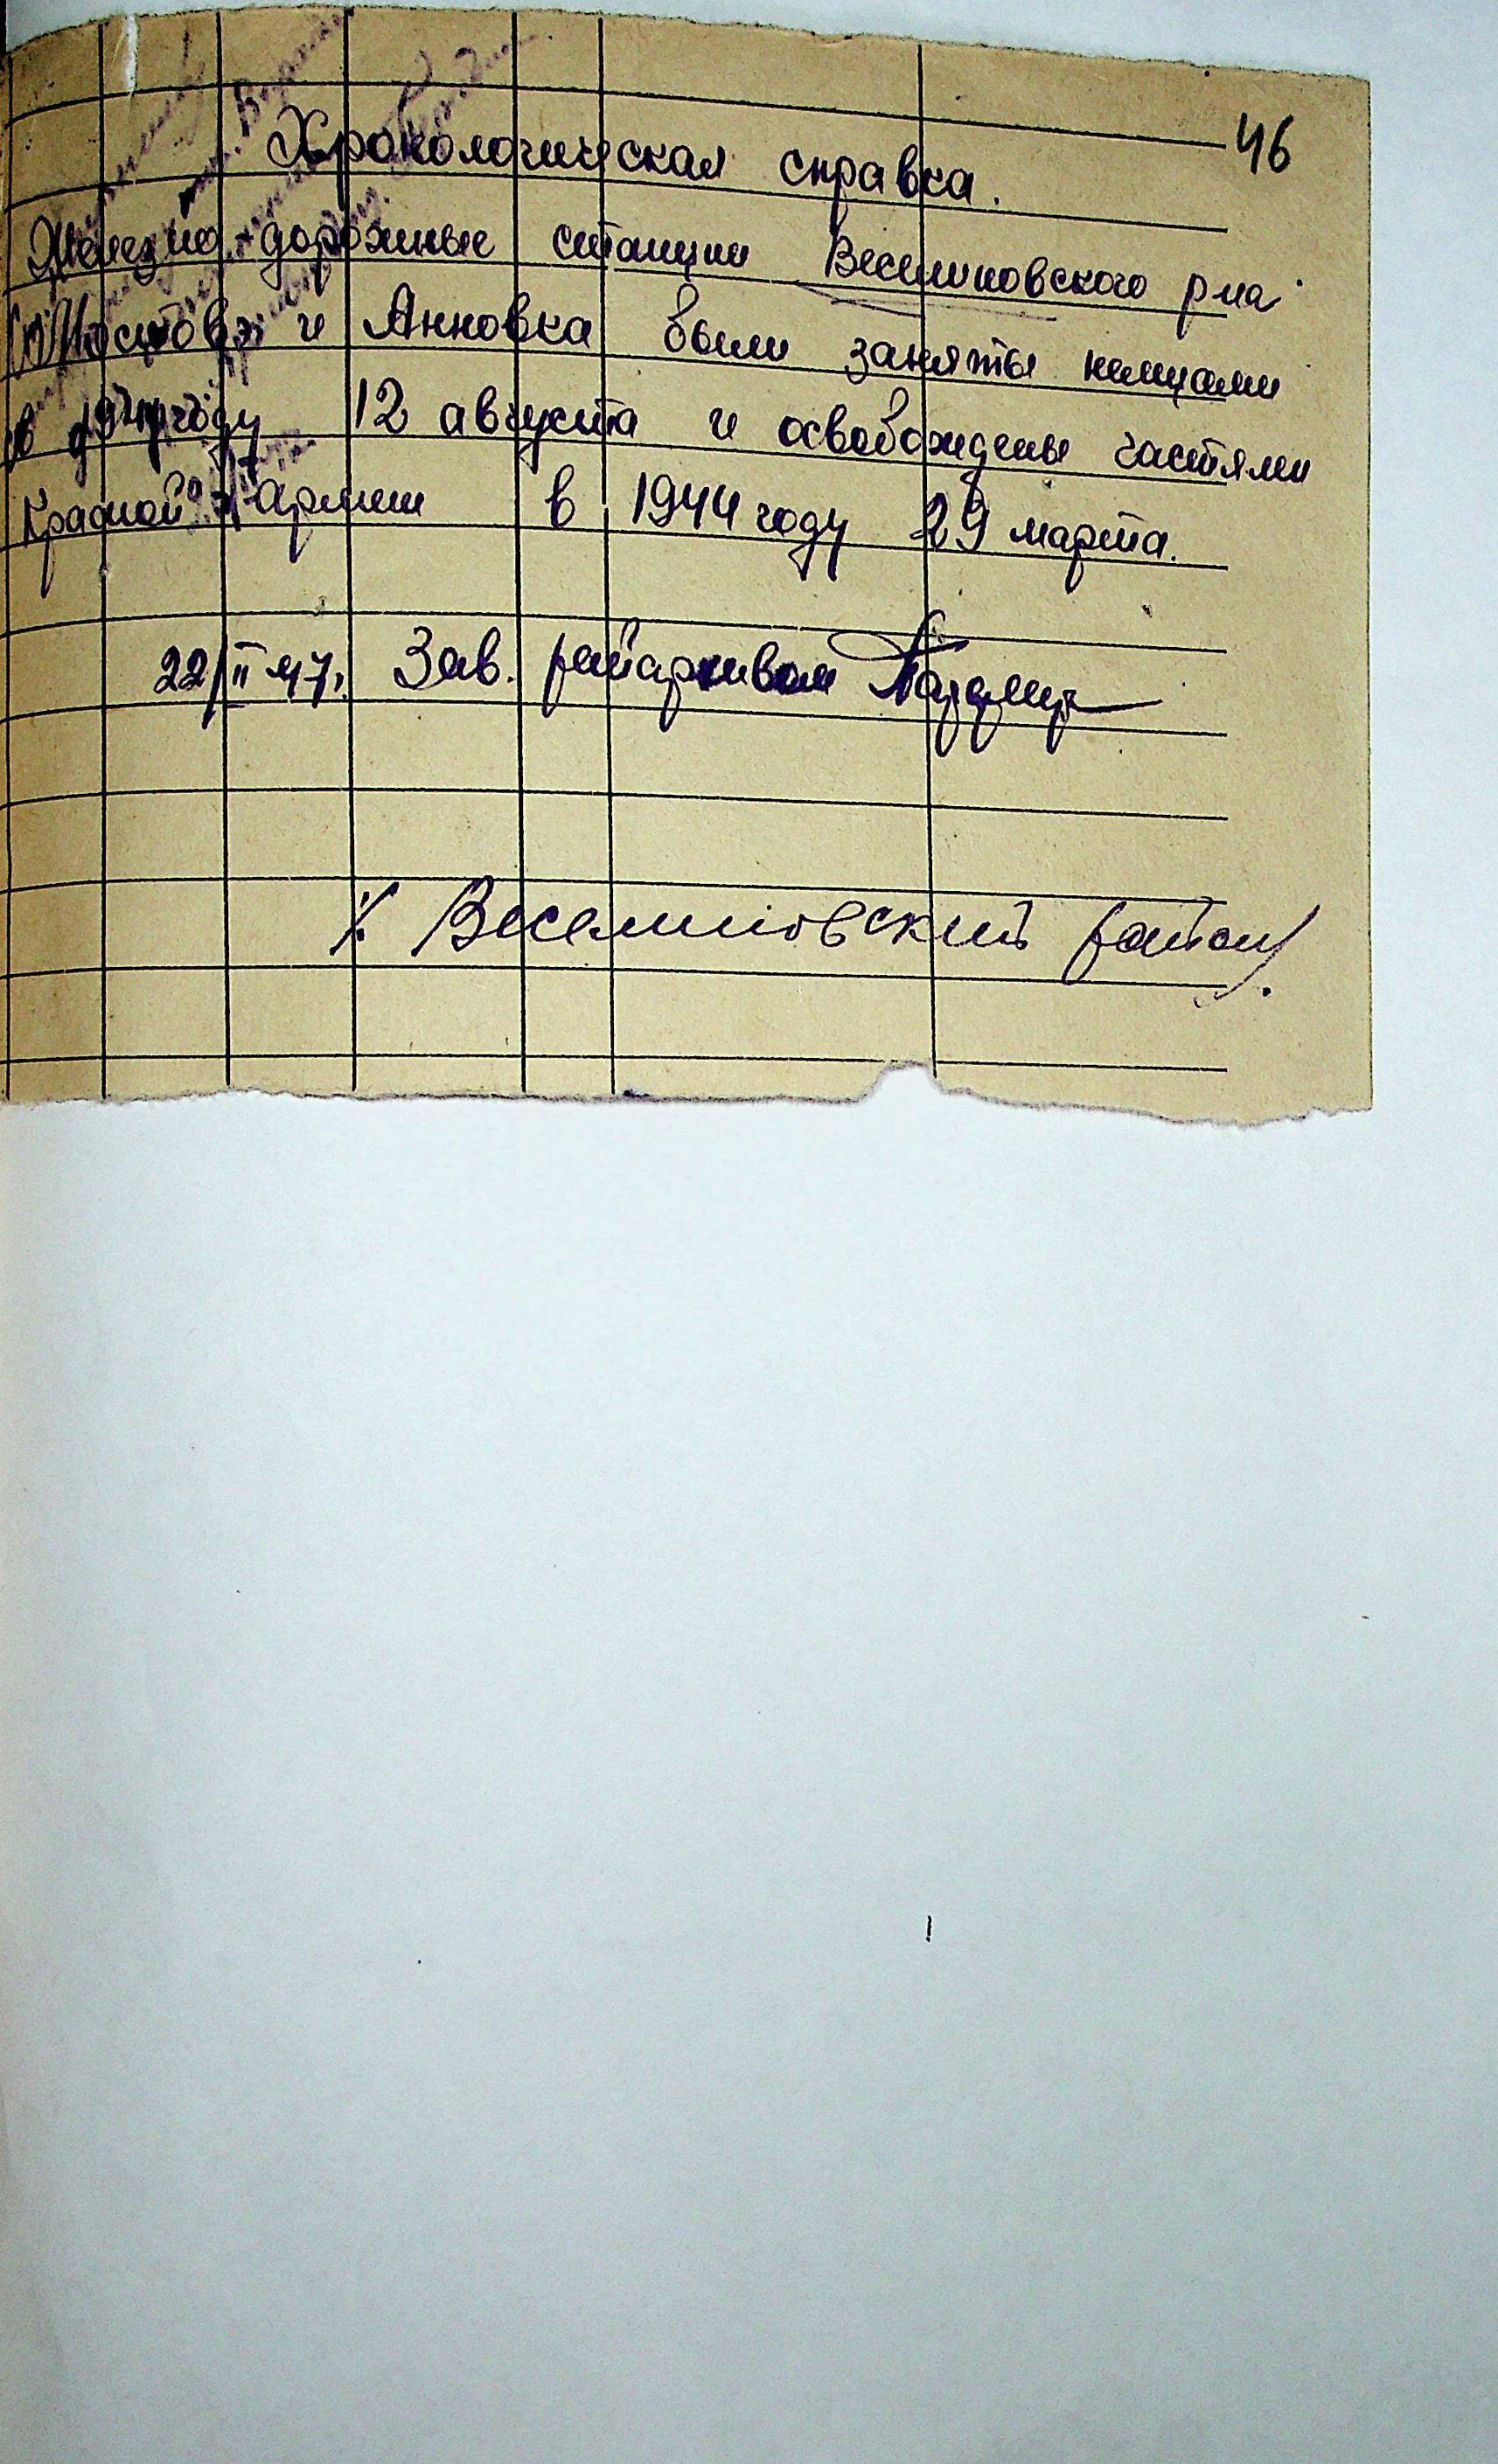 46
Хронологическая справка.
Железно-дорожные станции Веселиновского р-на
Мостовэ и Анновка были заняты немцами
в 1941 году 12 августа и освобождены частями
Красной Армии в 1944 году 29 марта.
22/II 47г. Зав. райархивом
/. Веселиновский район/.